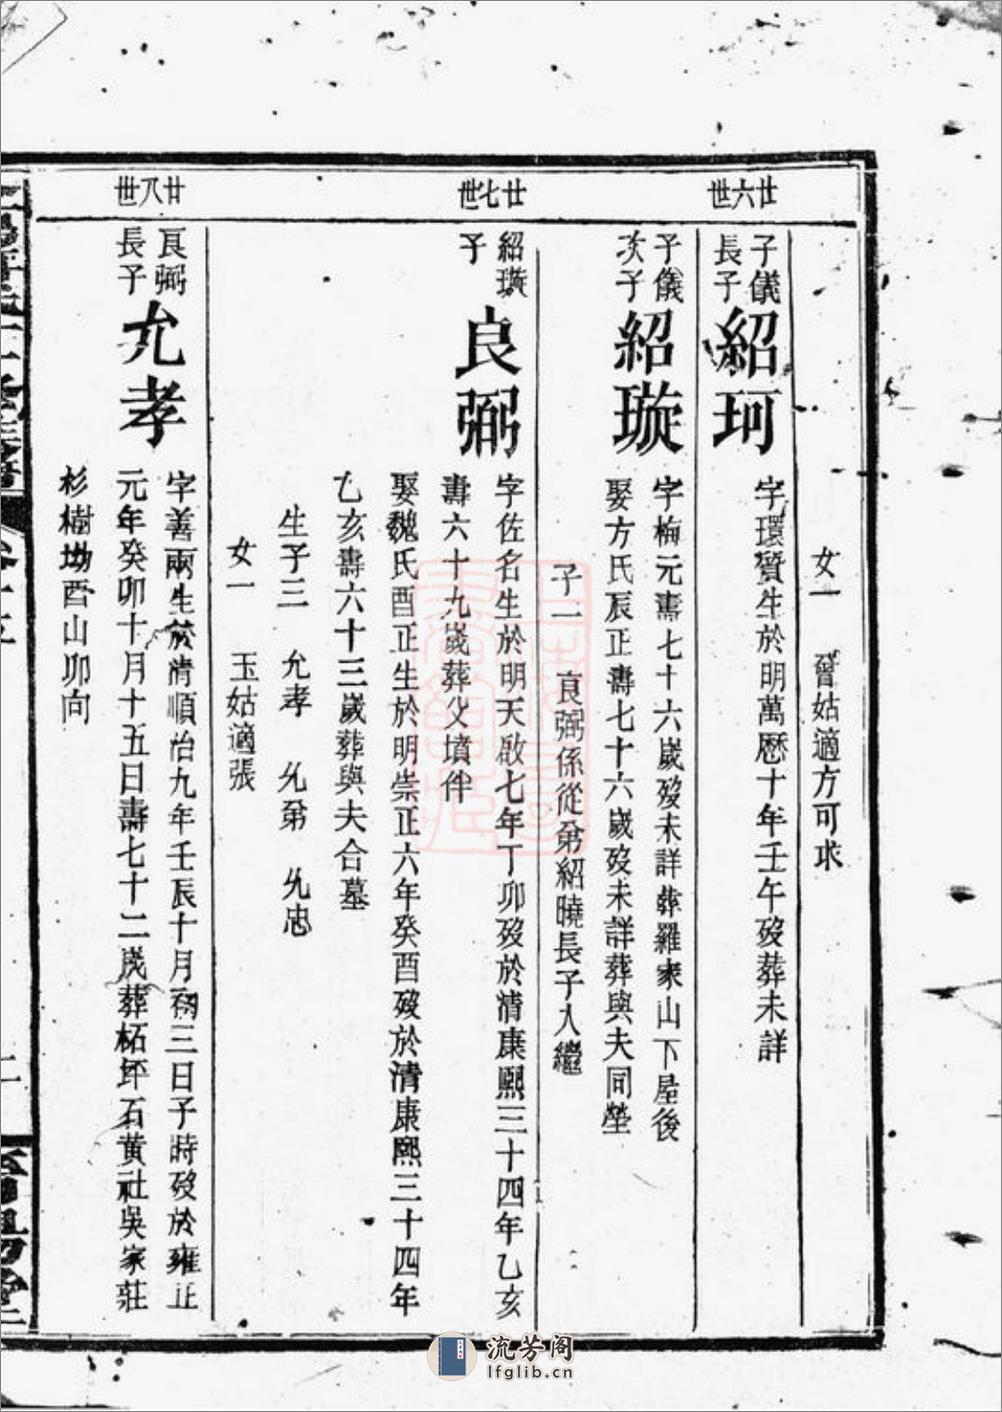 女一　曾姑適方可求
廿六世
子儀長子
紹珂
字環贊生於明萬歷十年壬午歿葬未詳
子儀次子
紹璇
字梅元壽七十六歲歿未詳葬羅家山下屋後
娶方氏辰正壽七十六歲歿未詳葬與夫同塋
子一　良弼係從弟紹曉長子入繼
廿七世
紹璇子
良弼
字佐名生於明天啟七年丁卯歿於清康熙三十四年乙亥
壽六十九歲葬父墳伴
娶魏氏酉正生於明崇正六年癸酉歿於清康熙三十四年
乙亥壽六十三歲葬與夫合墓
生子三　允孝　允弟　允忠
女一　玉姑適張
廿八世
良弼長子
允孝
字善兩生於清順治九年壬辰十月初三日子時歿於雍正
元年癸卯十月十五日壽七十二歲葬柘坪石黃社吳家莊
杉樹坳酉山卯向
流芳阁
lfglib.cn